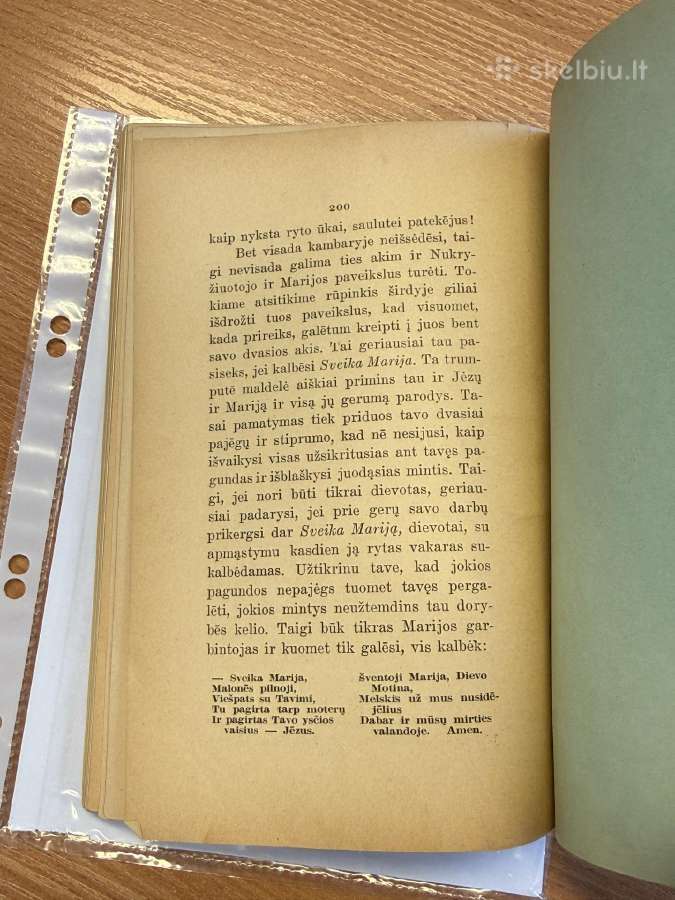 skelbiu.lt
200
kaip nyksta ryto ūkai, saulutei patekėjus!
Bet visada kambaryje neišsėdėsi, tai-
gi nevisada galima ties akim ir Nukry-
žiuotojo ir Marijos paveikslus turėti. To-
kiame atsitikime rūpinkis širdyje giliai
išdrožti tuos paveikslus, kad visuomet,
kada prireiks, galėtum kreipti į juos bent
savo dvasios akis. Tai geriausiai tau pa-
siseks, jei kalbėsi Sveika Marija. Ta trum-
putė maldelė aiškiai primins tau ir Jėzų
ir Mariją ir visą jų gerumą parodys. Ta-
sai pamatymas tiek priduos tavo dvasiai
pajėgų ir stiprumo, kad nē nesijusi, kaip
išvaikysi visas užsikritusias ant tavęs pa-
gundas ir išblaškysi juodąsias mintis. Tai-
gi, jei nori būti tikrai dievotas, geriau-
siai padarysi, jei prie gerų savo darbų
prikergsi dar Sveika Mariją, dievotai, su
apmąstymu kasdien ją rytas vakaras su-
kalbėdamas. Užtikrinu tave, kad jokios
pagundos nepajėgs tuomet tavęs perga-
lėti, jokios mintys neužtemdins tau dory-
bės kelio. Taigi būk tikras Marijos gar-
bintojas ir kuomet tik galėsi, vis kalbėk:
— Sveika Marija,
Malonės pilnoji,
Viešpats su Tavimi,
Tu pagirta tarp moterų
Ir pagirtas Tavo ysčios
vaisius — Jėzus.
šventoji Marija, Dievo
Motina,
Melskis už mus nusidė-
jėlius
Dabar ir mūsų mirties
valandoje. Amen.